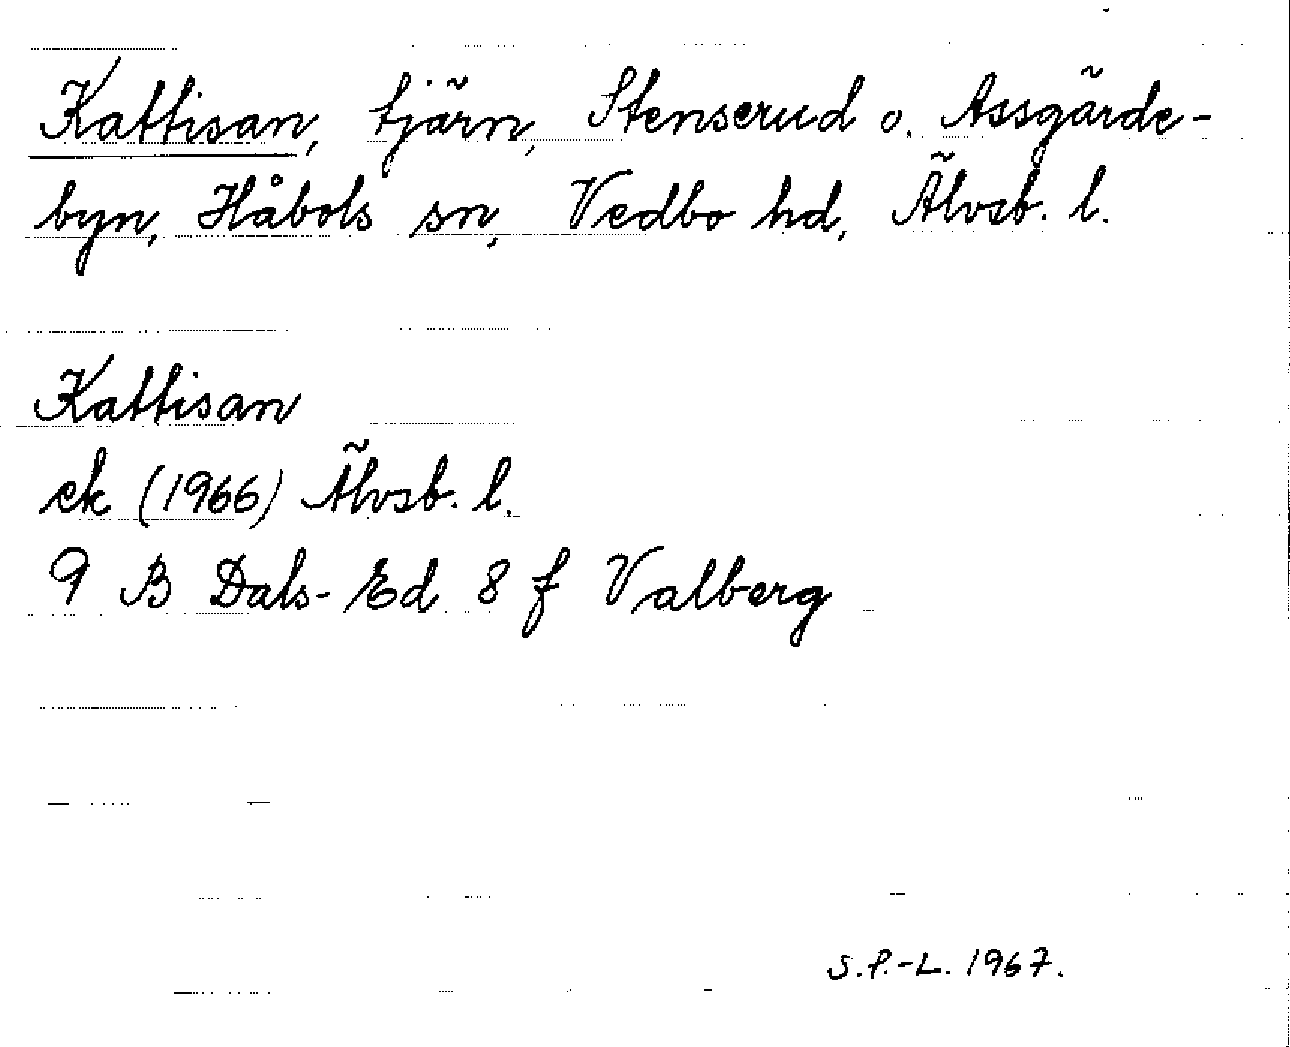 Kattisan, tjärn, Stenserud o. Assgärde-
byn, Håbols sn, Vedbo hd, Älvsb. l.
Kattisan
ek (1966) Älvsb. l.
9 B Dals-Ed 8 f Valberg
S.P.-L. 1967.